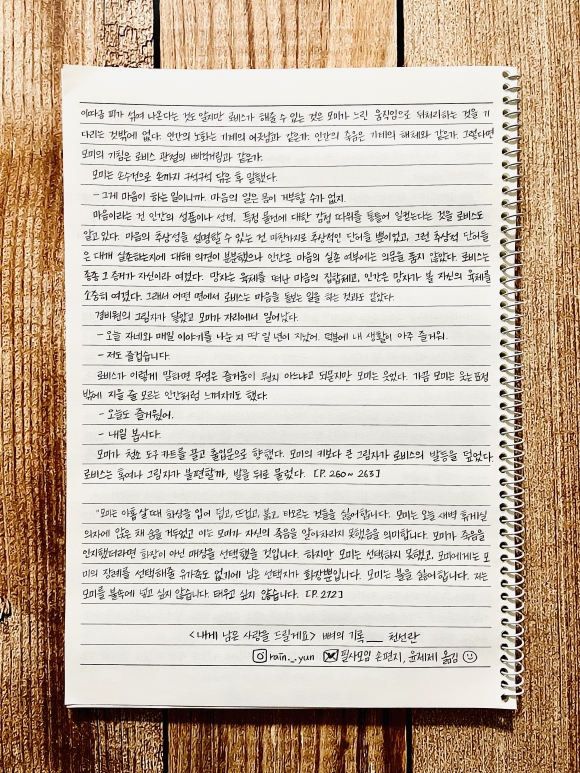 이따금 피가 섞여 나온다는 것도 알지만 로비스가 해줄 수 있는 것은 모미가 느린 움직임으로 뒤처리하는 것을 기
다리는 것밖에 없다. 인간의 노화는 기계의 어긋남과 같은가. 인간의 죽음은 기계의 해체와 같은가. 그렇다면
모미의 기침은 로비스 관절의 삐걱거림과 같은가.
모미는 손수건으로 손까지 구석구석 닦은 후 말했다.
- 그게 마음이 하는 일이니까. 마음의 일은 몸이 거부할 수가 없지.
마음이라는 건 인간의 성품이나 성격, 특정 물건에 대한 감정 따위를 통틀어 일컫는다는 것을 로비스도
알고 있다. 마음의 추상성을 설명할 수 있는 건 마찬가지로 추상적인 단어들 뿐이었고, 그런 추상적 단어들
은 대개 실존하는지에 대해 의견이 분분했으나 인간은 마음의 실존 여부에는 의문을 품지 않았다. 로비스는
종종 그 증거가 자신이라 여겼다. 망자는 육체를 떠난 마음의 집합체고, 인간은 망자가 될 자신의 육체를
소중히 여겼다. 그래서 어떤 면에서 로비스는 마음을 돌보는 일을 하는 것과도 같았다.
경비원의 그림자가 닿았고 모미가 자리에서 일어났다.
- 오늘 자네와 매일 이야기를 나눈 지 딱 일 년이 지났어. 덕분에 내 생활이 아주 즐거워.
- 저도 즐겁습니다.
로비스가 이렇게 말하면 무영은 즐거움이 뭔지 아느냐고 되묻지만 모미는 웃었다. 가끔 모미는 웃는 표정
밖에 지을 줄 모르는 인간처럼 느껴지기도 했다.
- 오늘도 즐거웠어.
- 내일 봅시다.
모미가 청소 도구 카트를 끌고 출입문으로 향했다. 모미의 키보다 큰 그림자가 로비스의 발등을 덮었다.
로비스는 혹여나 그림자가 불편할까, 발을 뒤로 물렀다. [P. 260 ~ 263]
"모미는 아홉 살 때 화상을 입어 덥고, 뜨겁고, 붉고, 타오르는 것들을 싫어합니다. 모미는 오늘 새벽 휴게실
의자에 앉은 채 숨을 거두었고 이는 모미가 자신의 죽음을 알아차리지 못했음을 의미합니다. 모미가 죽음을
인지했더라면 화장이 아닌 매장을 선택했을 것입니다. 하지만 모미는 선택하지 못했고, 모미에게는 모
미의 장례를 선택해줄 유가족도 없기에 남은 선택지가 화장뿐입니다. 모미는 불을 싫어합니다. 저는
모미를 불속에 넣고 싶지 않습니다. 태우고 싶지 않습니다. [P. 272]
<내게 남은 사랑을 드릴게요> 뼈의 기록 __ 천선란
rain._.yun 필사모임 손편지, 윤제제 옮김